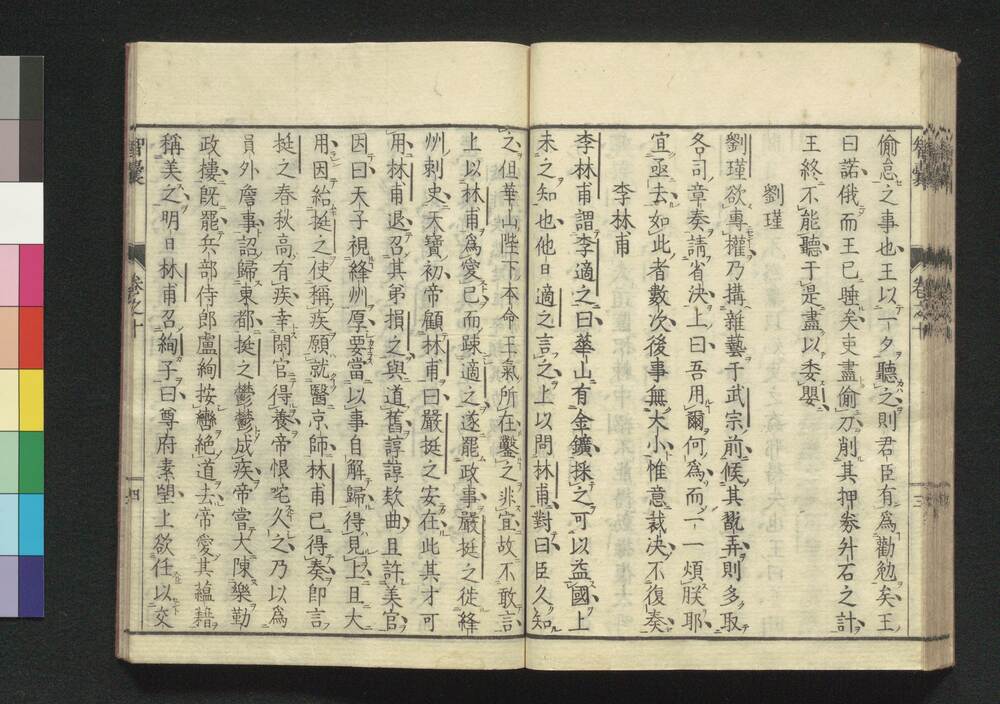 偷怠之事也王以一夕聽之則君臣有爲勸勉矣王
曰諾俄而王已睡矣吏盡偷刀削其押劵升石之計
王終不能聽于是盡以委嬰
劉瑾
劉瑾欲專權乃搆雜藝于武宗前候其翫弄則多取
各司章奏請省決上曰吾用爾何爲而一一煩朕耶
宜亟去如此者數次後事無大小惟意裁決不復奏
李林甫
李林甫謂李適之曰華山有金鑛採之可以益國上
未之知也他日適之言之上以問林甫對曰臣久知
之但華山陛下本命王氣所在鑿之非宜故不敢言
上以林甫爲愛己而踈適之遂罷政事嚴挺之徙絳
州刺史天寶初帝顧林甫曰嚴挺之安在此其才可
用林甫退召其弟損之與道舊諄諄欵曲且許美官
因曰天子視絳州厚要當以事自解歸得見上且大
用因紿挺之使稱疾願就醫京師林甫已得奏即言
挺之春秋高有疾幸閑官得養帝恨咤久之乃以爲
員外詹事詔歸東都挺之鬱鬱成疾帝嘗大陳樂勤
政樓既罷兵部侍郎盧絢按轡絕道去帝愛其蘊藉
稱美之明日林甫召絢子曰尊府素望上欲任以交
智囊
卷之十
三
智囊
卷之十
四